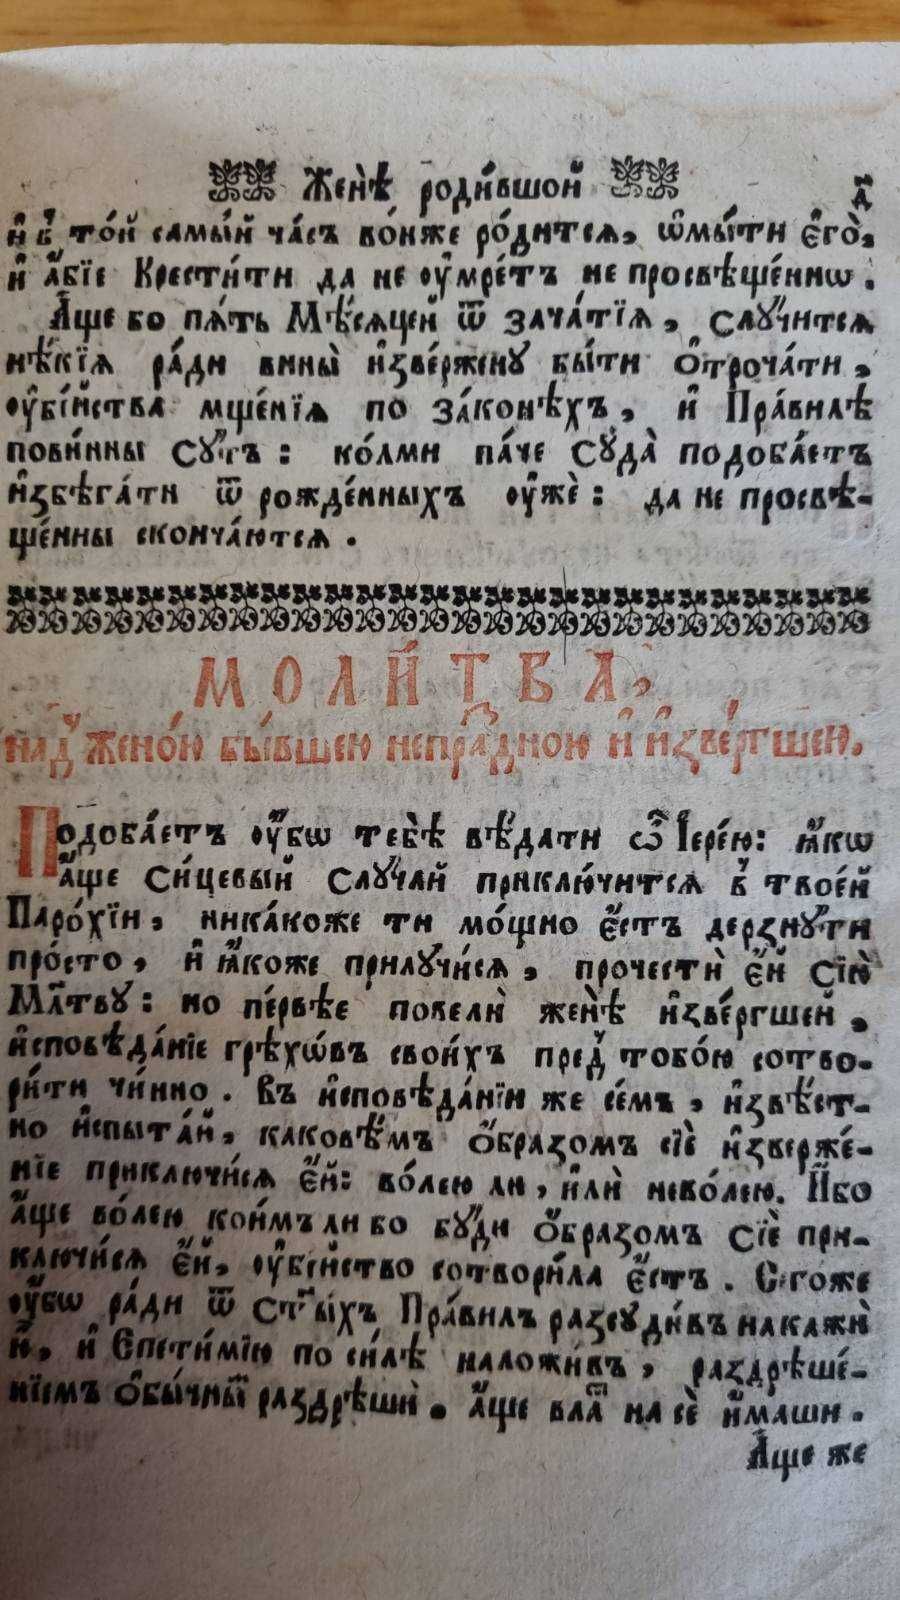 Женѣ̀ роди́вшой д҃
и҆ в̾ то́й самы́й ча́съ во́нже ро́дитсѧ, ѡ҆мы́ти є҆го̀,
и҆ а҆́бїе Крести́ти да не ᲂу҆мре́тъ не просвѣще́ннѡ.
А҆́ще бо пѧ́ть Мѣ́сѧцей ѿ зача́тїѧ, слꙋчи́тсѧ
нѣ́кїѧ ра́ди вины̀ и҆зве́рженꙋ бы́ти ѻ҆троча́ти,
ᲂу҆бі́йства мще́нїѧ по зако́нѣхъ, и҆ Пра́вилѣ
пови́нны сꙋ́тъ: ко́лми па́че сꙋда̀ подоба́етъ
и҆збѣга́ти ѿ рожде́нныхъ ᲂу҆жѐ: да не просвѣ-
ще́нны сконча́ютсѧ.
МОЛИ́ТВА,
над̾ жено́ю бы́вшею непра́здною и҆ и҆зве́ргшею.
Подоба́етъ ᲂу҆́бѡ тебѣ̀ вѣ́дати ѽ І҆ере́ю: ꙗ҆́кѡ
а҆́ще си́цевый слꙋ́чай приклю́читсѧ в̾ твое́й
Паро́хїи, ника́коже ти мо́щно є҆́стъ дерзнꙋ́ти
про́сто, и҆ ꙗ҆́коже прилꙋчи́сѧ, прочестѝ є҆́й сїю̀
Мл҃твꙋ: но пе́рвѣе повелѝ женѣ̀ и҆зве́ргшей,
и҆сповѣ́данїе грѣхѡ́въ свои́хъ пред̾ тобо́ю сотво-
ри́ти чи́нно. Въ и҆сповѣ́данїи же се́мъ, и҆звѣ́ст-
но и҆спыта́й, каковы́мъ ѻ҆́бразомъ сїѐ и҆зверже́-
нїе приключи́сѧ є҆́й: во́лею ли, и҆лѝ нево́лею. И҆́бо
а҆́ще во́лею кои́мъ либо бꙋ́ди ѻ҆́бразомъ сїѐ при-
ключи́сѧ є҆́й, ᲂу҆бі́йство сотвори́ла є҆́стъ. Сегоже
ᲂу҆́бѡ ра́ди ѿ ст҃ы́хъ Пра́вилъ разсꙋди́въ накажѝ
ю҆̀, и҆ Епети́мїю по си́лѣ наложи́въ, раздрѣше́-
нїемъ ѻ҆бы́чныⷨ раздрѣшѝ. а҆́ще влаⷭ҇ на сѐ и҆́маши.
А҆́ще же